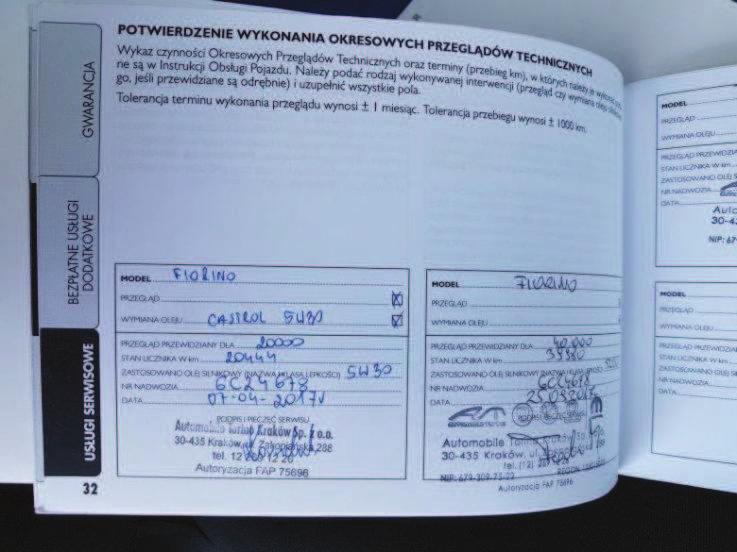 POTWIERDZENIE WYKONANIA OKRESOWYCH PRZEGLĄDÓW TECHNICZNYCH
Wykaz czynności Okresowych Przeglądów Technicznych oraz terminy (przebieg km), w których należy je wykonać
ne są w Instrukcji Obsługi Pojazdu. Należy podać rodzaj wykonywanej interwencji (przegląd czy wymiana oleju
go, jeśli przewidziane są odrębnie) i uzupełnić wszystkie pola.
Tolerancja terminu wykonania przeglądu wynosi ± 1 miesiąc. Tolerancja przebiegu wynosi ± 1000 km.
GWARANCJA
BEZPŁATNE USŁUGI
DODATKOWE
USŁUGI SERWISOWE
MODEL FIORINO
PRZEGLĄD X
WYMIANA OLEJU CASTROL 5W30 X
PRZEGLĄD PRZEWIDZIANY DLA 20000
STAN LICZNIKA W km 20444
ZASTOSOWANO OLEJ SILNIKOWY (NAZWA I KLASA LEPKOŚCI) 5W30
NR NADWOZIA 6C24678
DATA 07-04-2017
PODPIS I PIECZĘĆ SERWISU
Automobile Torino Kraków Sp. z o.o.
30-435 Kraków, ul. Zakopiańska 288
tel. 12
Autoryzacja FAP 75696
MODEL FIORINO
PRZEGLĄD
WYMIANA OLEJU
PRZEGLĄD PRZEWIDZIANY DLA 40.000
STAN LICZNIKA W km
ZASTOSOWANO OLEJ SILNIKOWY (NAZWA I KLASA
NR NADWOZIA
DATA
PODPIS I PIECZĘĆ SERWISU
Automobile
30-435 Kraków, ul.
tel. (12)
NIP: 679-309-75-22 REGON
Autoryzacja FAP 75696
32
MODEL
PRZEGLĄD
WYMIANA OLEJU
PRZEGLĄD
STAN LICZNIKA W km
ZASTOSOWANO OLEJ
NR NADWOZIA
DATA
MODEL
PRZEGLĄD
WYMIANA OLEJU
STAN LICZNIKA W km
ZASTOSOWANO OLEJ
NR NADWOZIA
DATA